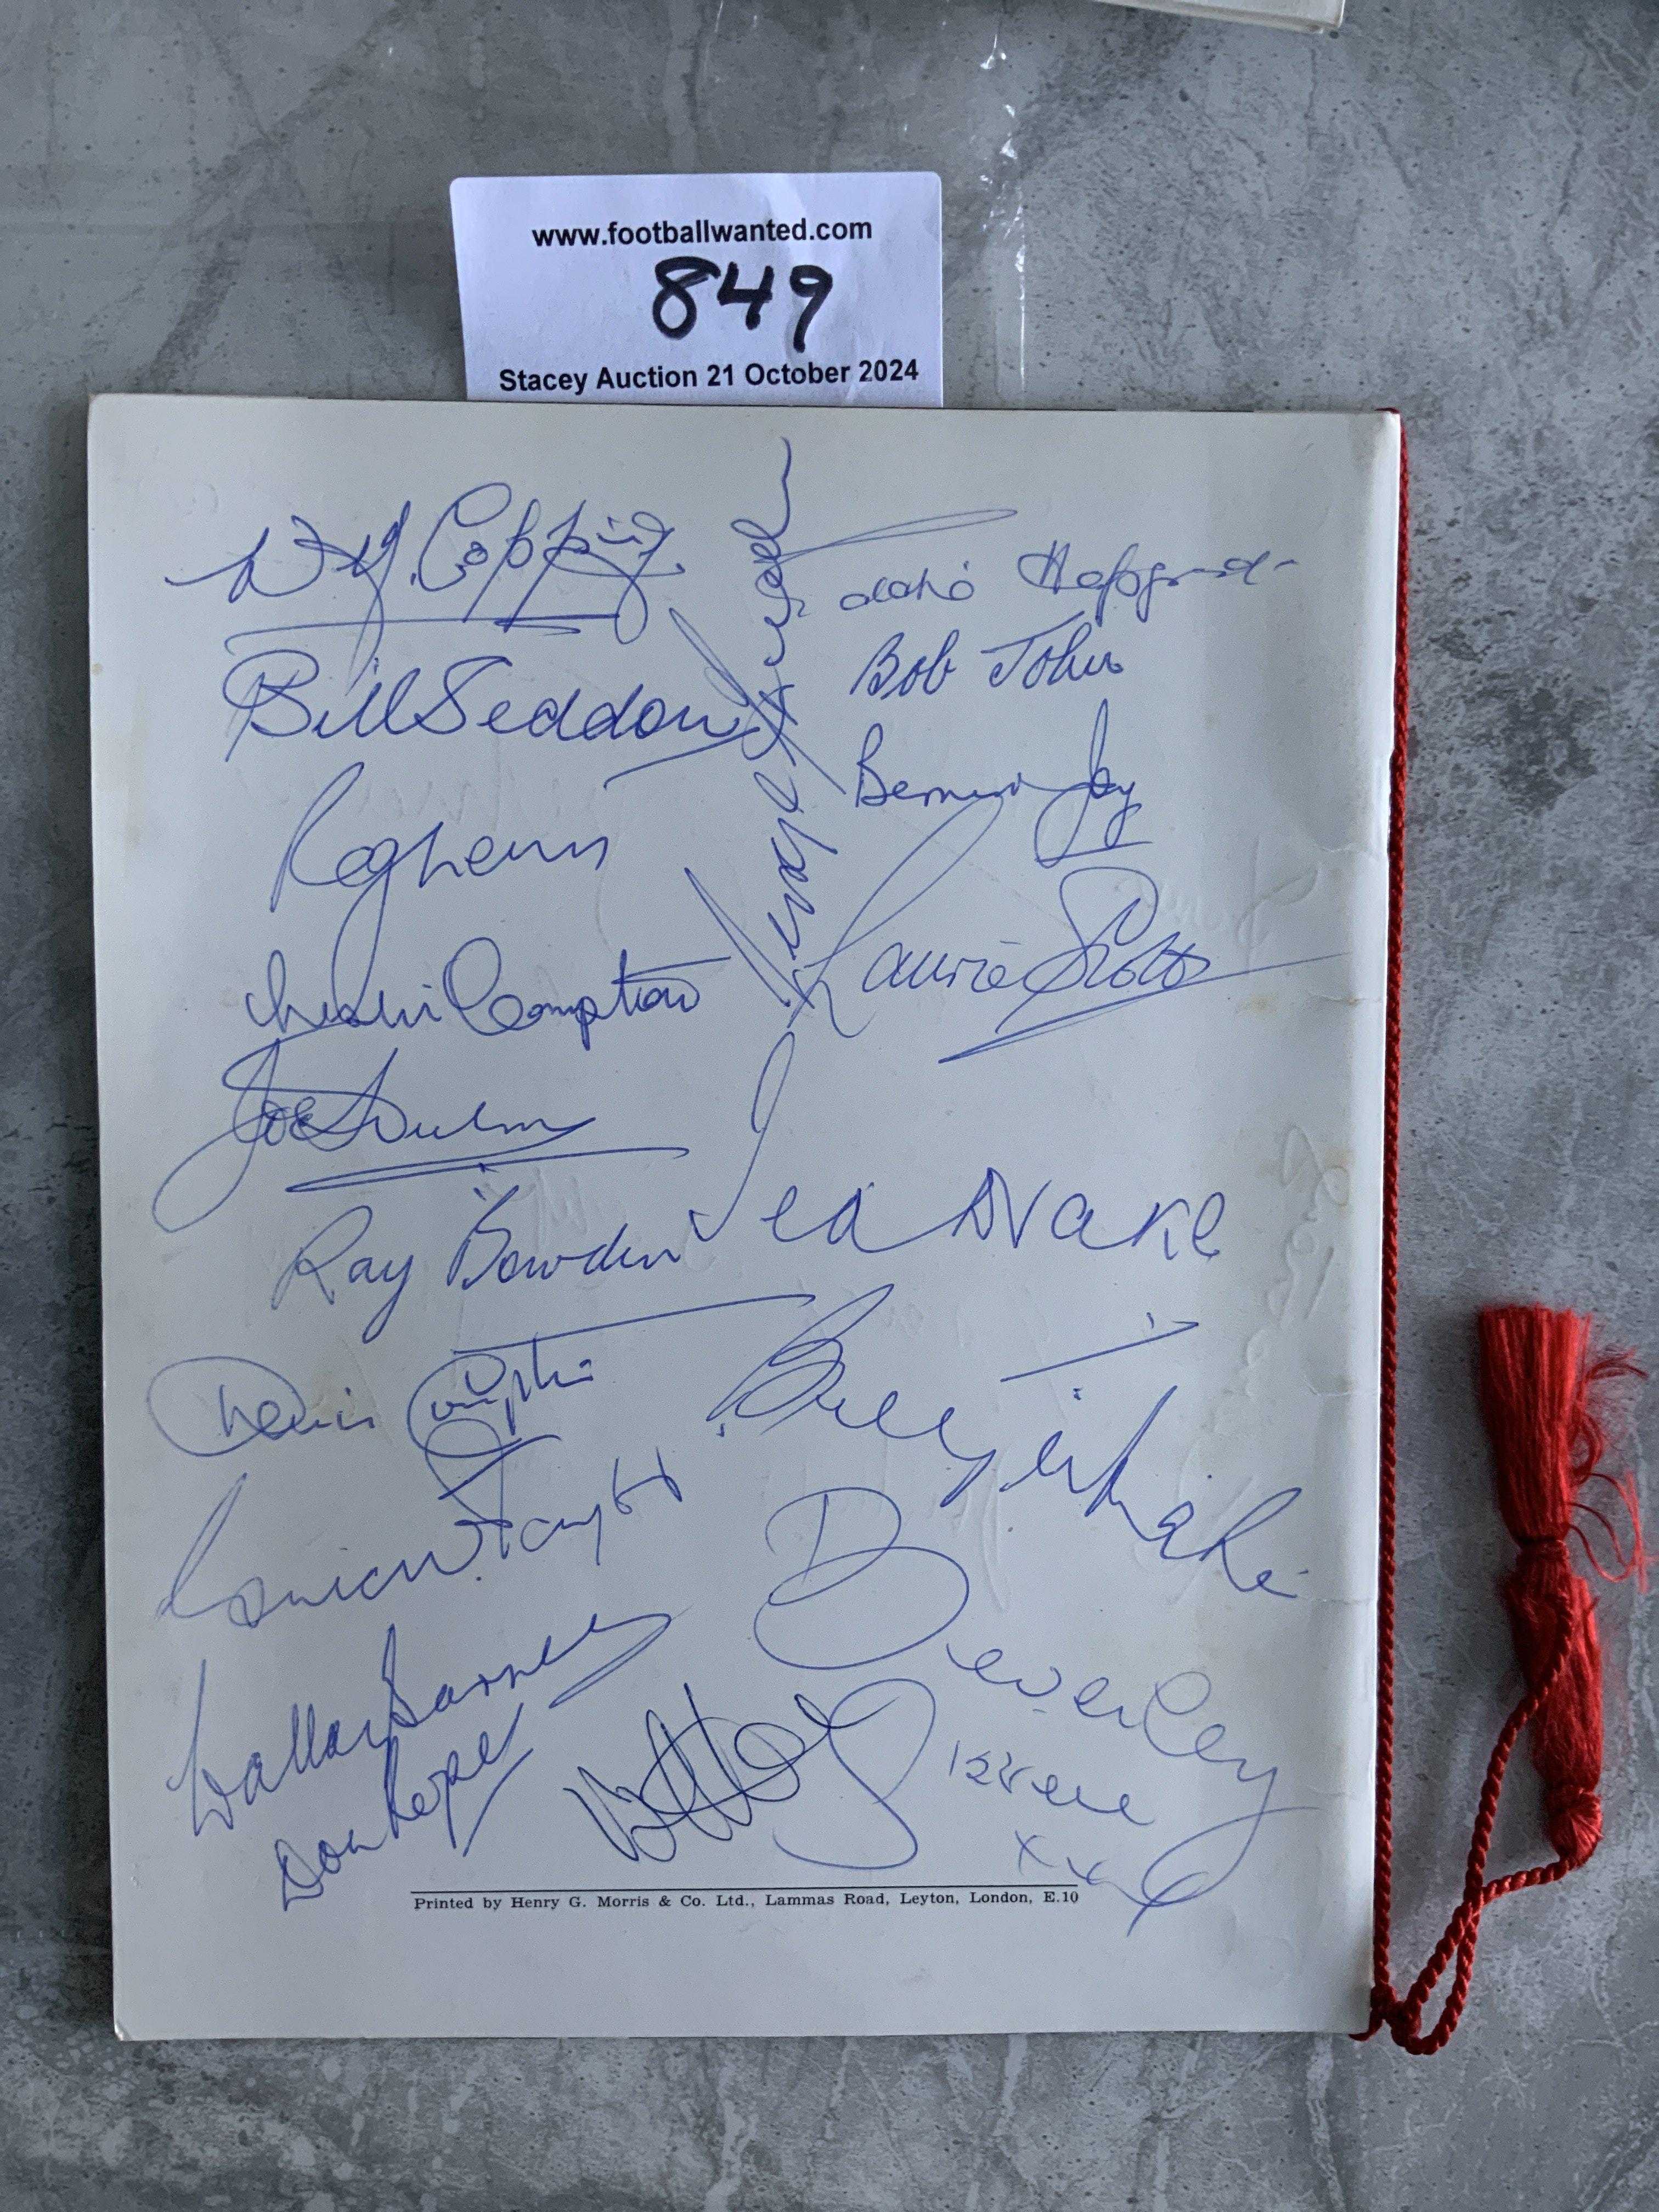 www.footballwanted.com
849
Stacey Auction 21 October 2024
W. Copping
Eddie Hapgood
Bill Seddon
Bob John
Bernard Joy
Reg Lewis
Laurie Scott
Leslie Compton
Joe Hulme
Ted Drake
Ray Bowden
Denis Compton
Beverley
Wally Barnes
Don Roper
xxx
Printed by Henry G. Morris & Co. Ltd., Lammas Road, Leyton, London, E.10